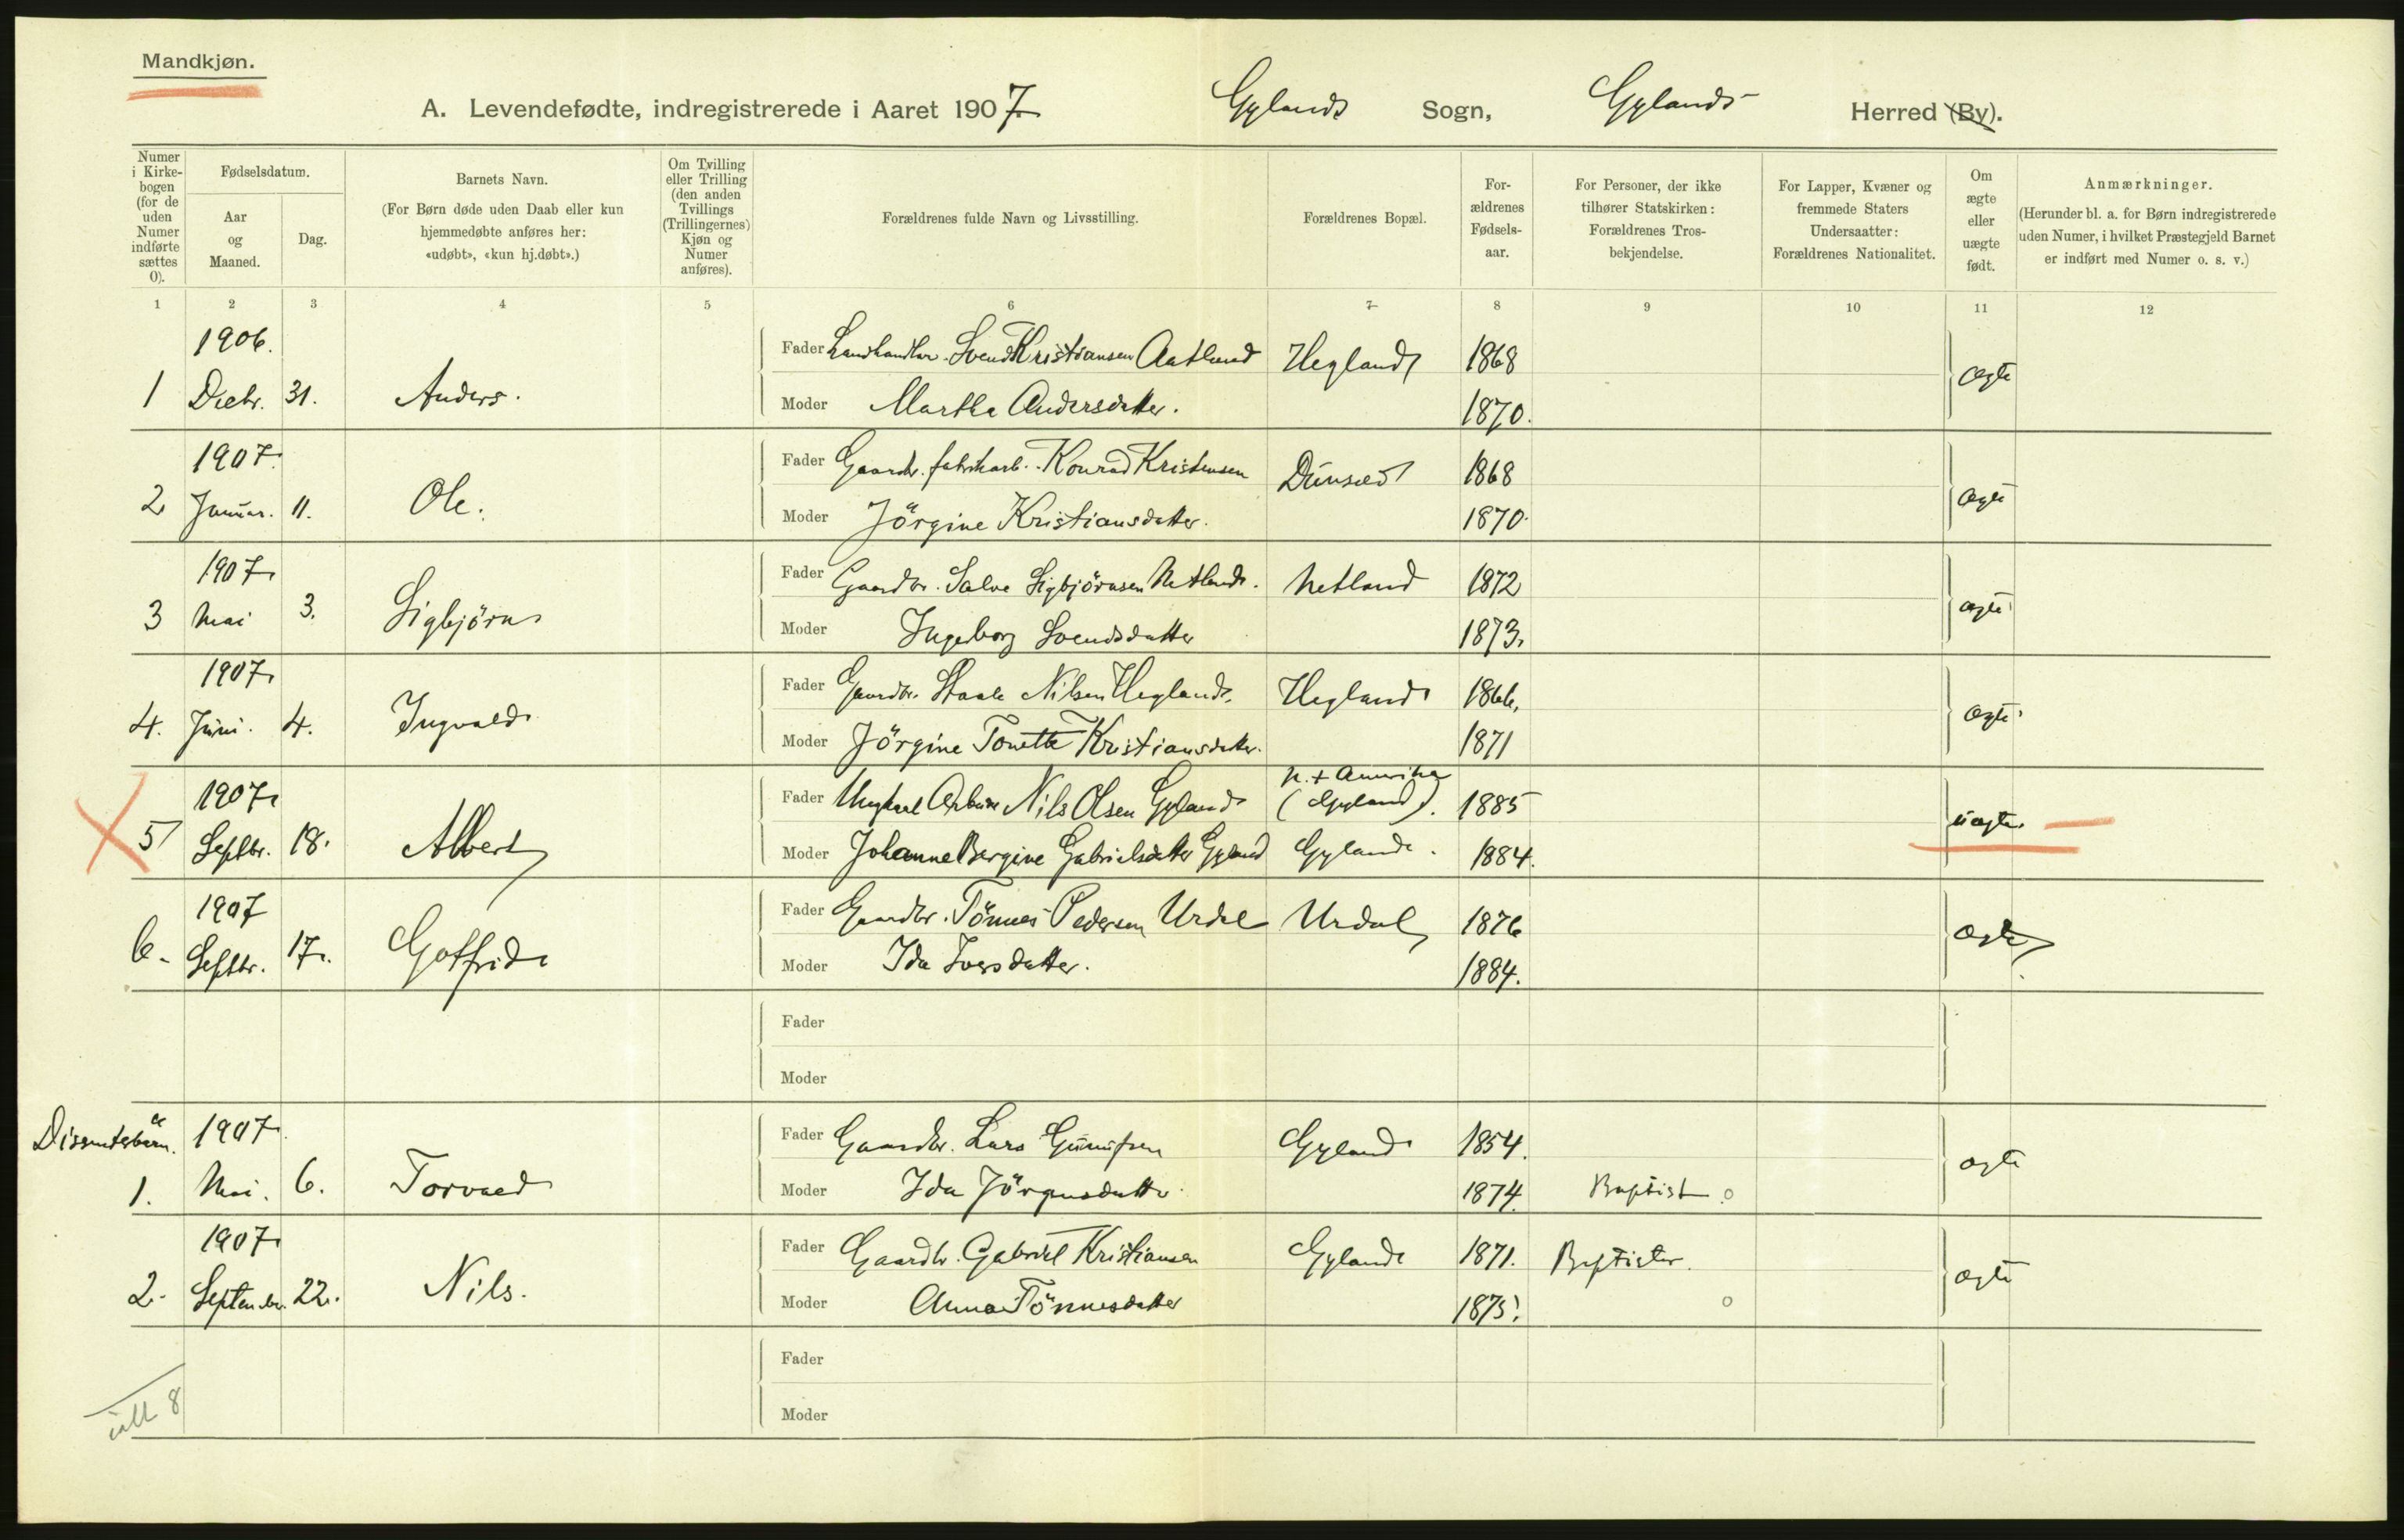 Mandkjøn.
A. Levendefødte, indregistrerede i Aaret 1907. Gylands Sogn, Gylands Herred (By).
Numer i Kirkebogen (for de uden Numer indførte sættes 0).
Fødselsdatum.
Aar og Maaned.
Dag.
Barnets Navn.
(For Børn døde uden Daab eller kun hjemmedøbte anføres her: «udøbt», «kun hj.døbt».)
Om Tvilling eller Trilling (den anden Tvillings (Trillingernes) Kjøn og Numer anføres).
Forældrenes fulde Navn og Livsstilling.
Forældrenes Bopæl.
Forældrenes Fødselsaar.
For Personer, der ikke tilhører Statskirken: Forældrenes Trosbekjendelse.
For Lapper, Kvæner og fremmede Staters Undersaatter: Forældrenes Nationalitet.
Om ægte eller uægte født.
Anmærkninger.
(Herunder bl. a. for Børn indregistrerede uden Numer, i hvilket Præstegjeld Barnet er indført med Numer o. s. v.)
1 2 3 4 5 6 7 8 9 10 11 12
1906.
Fader Landhandler. Svend Kristiansen Aatland Hegland 1868
1 Decbr. 31. Anders. ægte
Moder Martha Andersdatter. 1870.
1907.
Fader Gaardbr. fabrikarb. Konrad Kristensen Dunsæd 1868
2 Januar. 11. Ole. ægte
Moder Jörgine Kristiansdatter. 1870.
1907.
Fader Gaardbr. Salve Sigbjörnsen Netland. Netland 1872
3 Mai 3. Sigbjörn ægte
Moder Ingeborg Svendsdatter 1873.
1907.
Fader Gaardbr. Staale Nilsen Hegland. Hegland 1866.
4. Juni. 4. Ingvald ægte
Moder Jörgine Tonette Kristiansdatter. 1871
1907. N. + Amerika
Fader Ungkarl Arbeider Nils Olsen Gyland (Gyland). 1885
5 Septbr. 18. Albert uægte.
Moder Johanne Bergine Gabrielsdatter Gyland Gyland. 1884.
1907
Fader Gaardbr. Tönnes Pedersen Urdal Urdal 1876
6. Septbr. 17. Gotfrid ægte
Moder Ida Iversdatter. 1884.
Fader
Moder
Dissenterbørn. 1907.
Fader Gaardbr. Lars Gunufsen Gyland 1854.
1. Mai. 6. Torvald ægte
Moder Ida Jörgensdatter 1874. Baptist
1907
Fader Gaardbr. Gabriel Kristiansen Gyland 1871. Baptister.
2. September. 22. Nils. ægte
Moder Anna Tönnesdatter 1875.
Fader
Moder
ialt 8